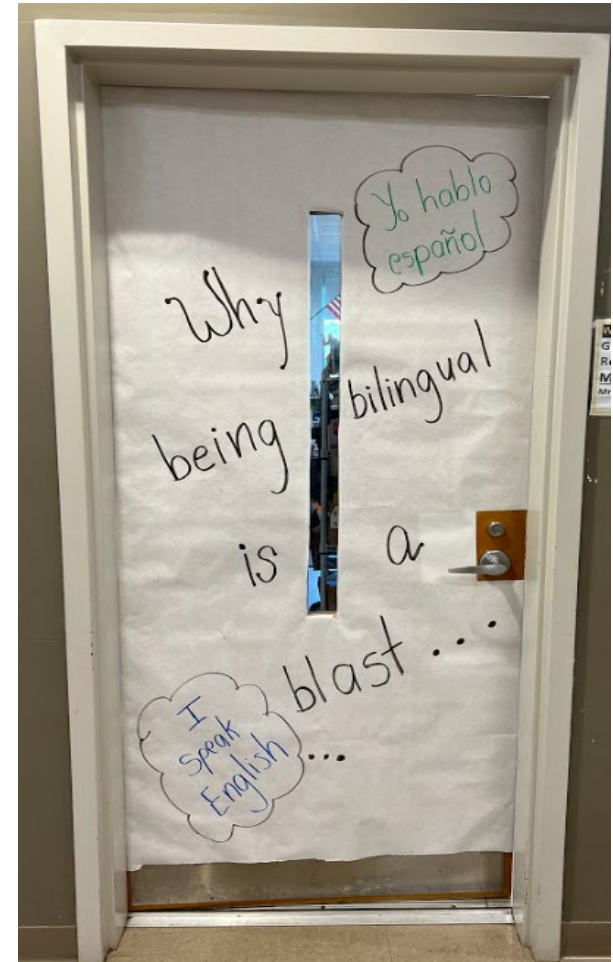 Yo hablo
español
Why
being bilingual
is a
blast ...
I
Speak
English
...